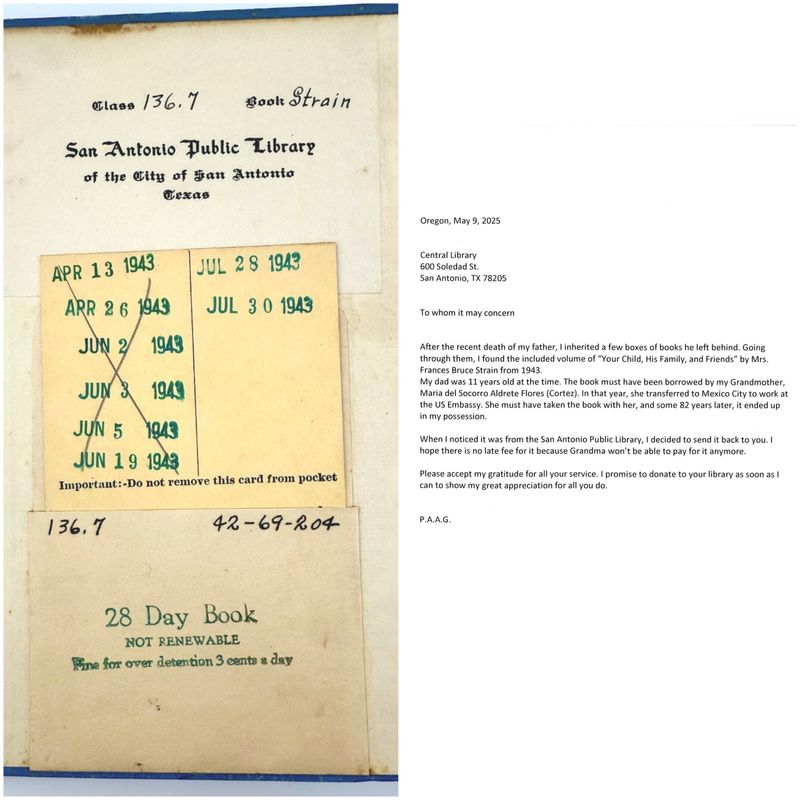 Class 136.7 Book Strain
San Antonio Public Library
of the City of San Antonio
Texas
APR 13 1943
APR 26 1943
JUN 2 1943
JUN 3 1943
JUN 5 1943
JUN 19 1943
JUL 28 1943
JUL 30 1943
Important:-Do not remove this card from pocket
136.7 42-69-204
28 Day Book
NOT RENEWABLE
Fine for over detention 3 cents a day
Oregon, May 9, 2025
Central Library
600 Soledad St.
San Antonio, TX 78205
To whom it may concern
After the recent death of my father, I inherited a few boxes of books he left behind. Going
through them, I found the included volume of "Your Child, His Family, and Friends" by Mrs.
Frances Bruce Strain from 1943.
My dad was 11 years old at the time. The book must have been borrowed by my Grandmother,
Maria del Socorro Aldrete Flores (Cortez). In that year, she transferred to Mexico City to work at
the US Embassy. She must have taken the book with her, and some 82 years later, it ended up
in my possession.
When I noticed it was from the San Antonio Public Library, I decided to send it back to you. I
hope there is no late fee for it because Grandma won't be able to pay for it anymore.
Please accept my gratitude for all your service. I promise to donate to your library as soon as I
can to show my great appreciation for all you do.
P.A.A.G.